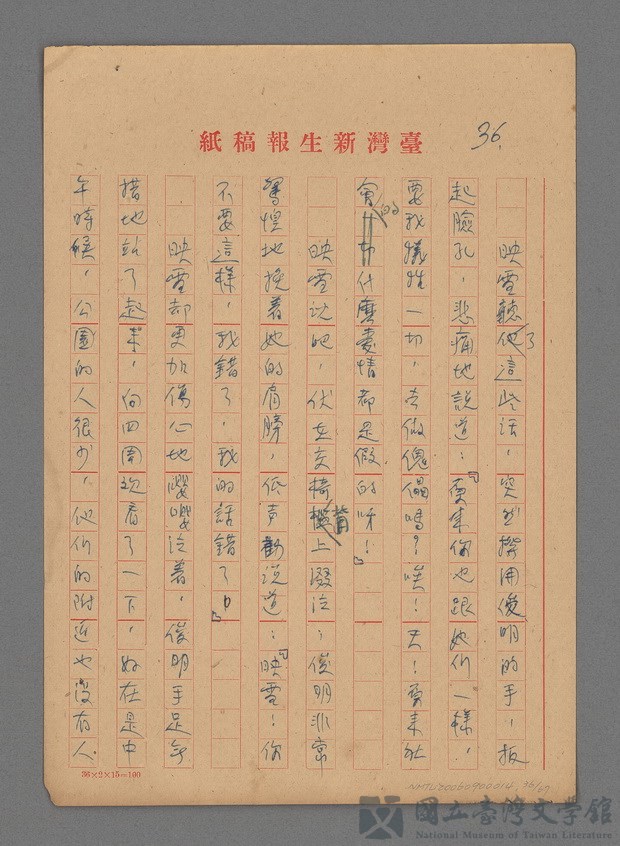 36.
臺灣新生報稿紙
映雪聽了他這些話，突然摔開俊明的手，扳
起臉孔，悲痛地説道：「原來你也跟她们一樣，
要我犧牲一切，去做傀儡嗎？唉！天！原來社
會的一切什麽愛情都是假的呀！」
映雪説吧，伏在交椅背上啜泣；俊明非常
驚惶地挽着她的肩膀，低声勸说道：「映雪！你
不要這樣，我錯了，我的話錯了！」
映雪却更加傷心地嚶嚶泣着，俊明手足無
措地站了起来，向四圍观看了一下，好在是中
午時候，公園的人很少，他们的附近也沒有人
36×2×15=100
NMTL20060900014 36/67
國立臺灣文學館
National Museum of Taiwan Literature